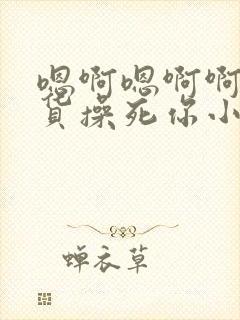 嗯啊嗯啊啊
货操死你小
蝉衣草